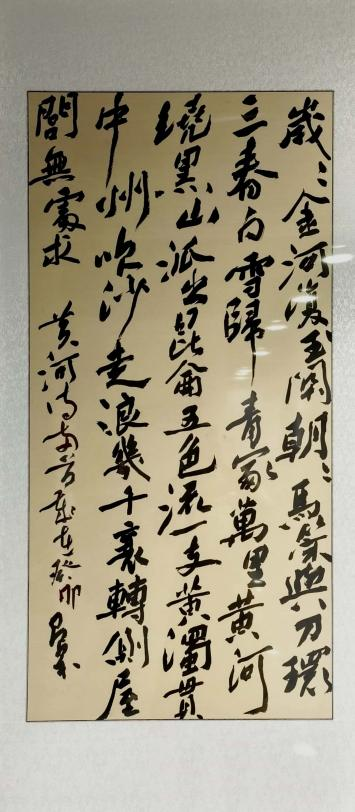 歲〻金河復玉關朝〻馬策與刀環
三春白雪歸青冢萬里黃河
繞黑山派出昆侖五色流一支黃濁貫
中州吹沙走浪幾千裏轉側屋
閭無處求 黃河詩兩首歲在癸卯